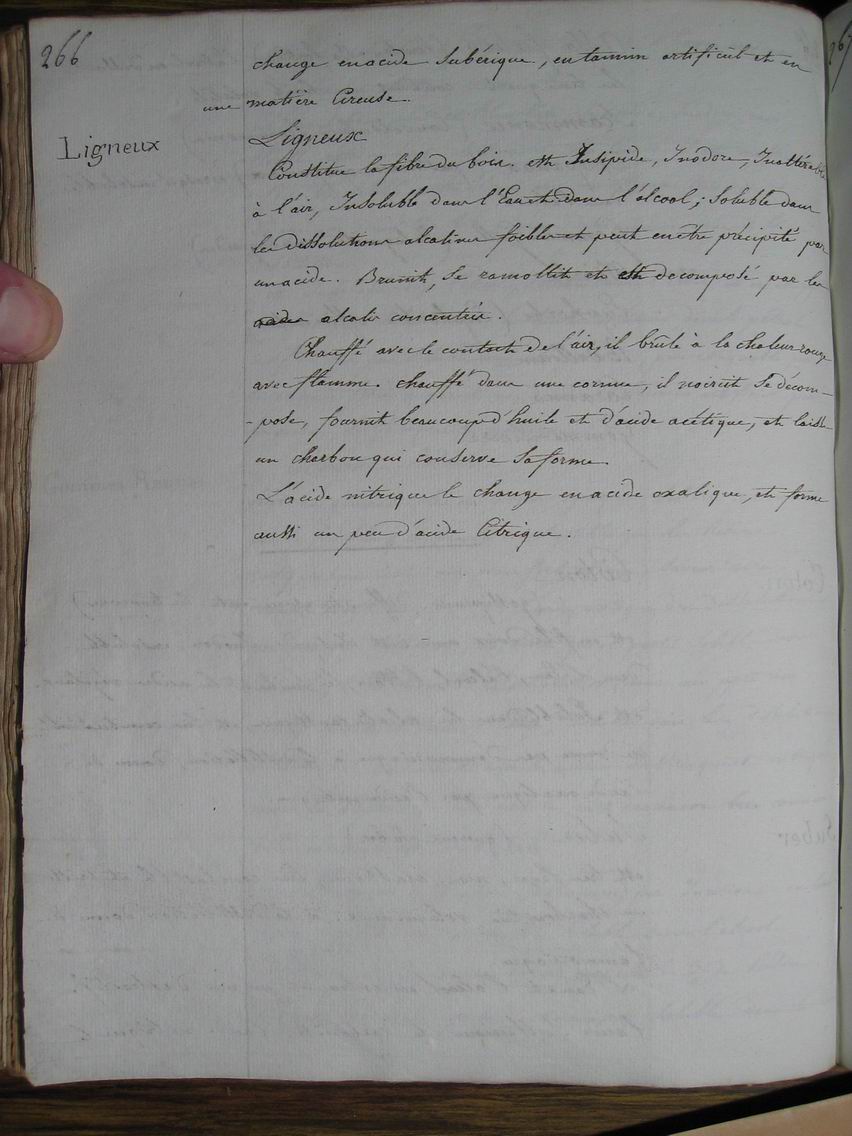 266
change en acide Subérique, en tannin artificiel et en
une matière Cireuse.
Ligneux
Ligneux
Constitue la fibre du bois. est Insipide, Inodore, Inaltérable
à l'air, Insoluble dans l'Eau et dans l'alcool; Soluble dans
les dissolutions alcalines foibles et peut en être précipité par
un acide. Brunit, se ramollit et est decomposé par les
acides alcalis concentrés.
Chauffé avec le contact de l'air, il brûle à la chaleur rouge
avec flamme. chauffé dans une cornue, il noircit se décom-
-pose, fournit beaucoup d'huile et d'acide acétique, et laisse
un charbon qui conserve sa forme.
L'acide nitrique le change en acide oxalique, et forme
aussi un peu d'acide Citrique.